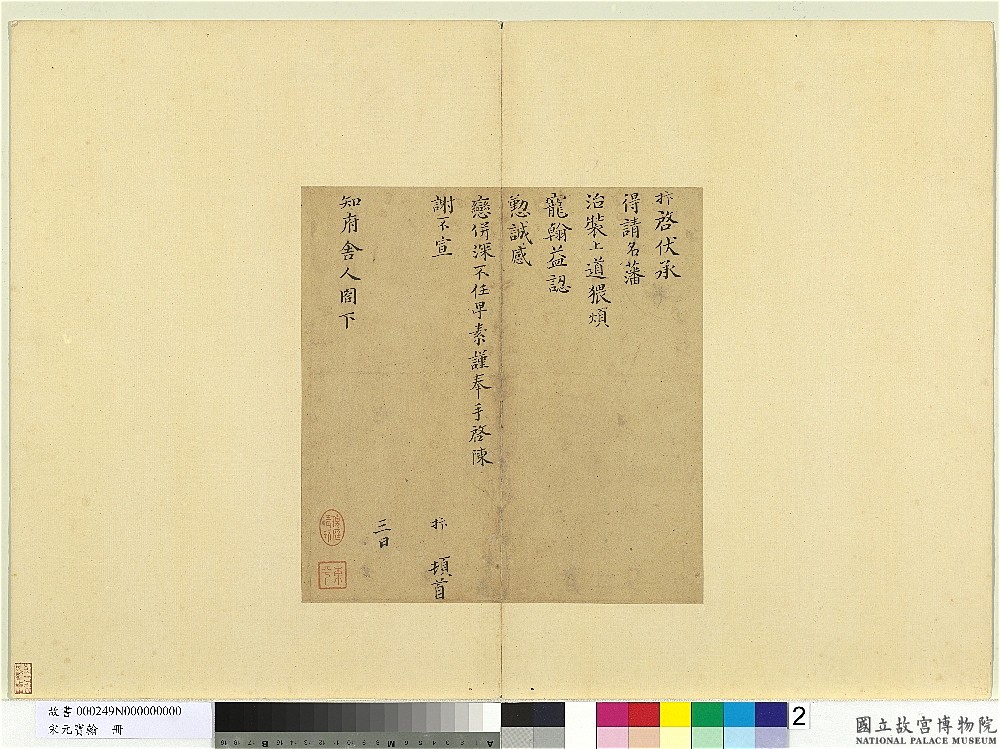 抃啓伏承
得請名藩
治裝上道猥煩
寵翰益認
懃誠感
戀併深不任早素謹奉手啓陳
謝不宣
抃 頓首
三日
知府舍人閤下
故書 000249N000000000
宋元寶翰 冊
B
M
A
2
國立故宮博物院
NATIONAL PALACE MUSEUM